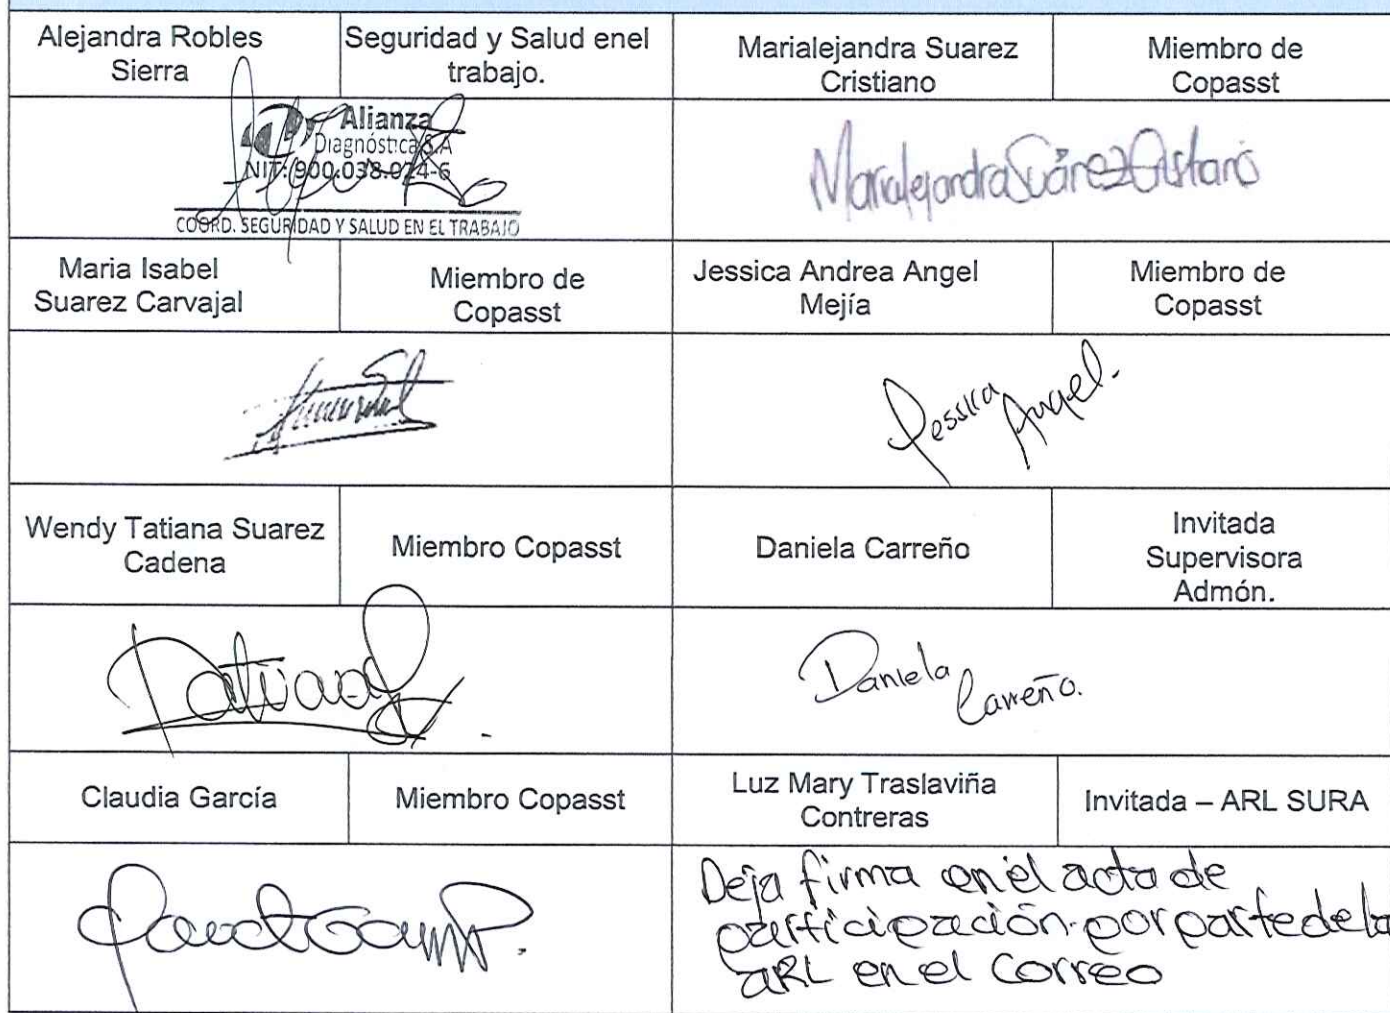 Alejandra Robles
Sierra
Seguridad y Salud enel
trabajo.
Marialejandra Suarez
Cristiano
Miembro de
Copasst
Alianza
Diagnóstica S.A
NIT: 900.038.024-6
COORD. SEGURIDAD Y SALUD EN EL TRABAJO
Marialejandra Suárez Cristiano
Maria Isabel
Suarez Carvajal
Miembro de
Copasst
Jessica Andrea Angel
Mejía
Miembro de
Copasst
Jessica
Angel.
Wendy Tatiana Suarez
Cadena
Miembro Copasst
Daniela Carreño
Invitada
Supervisora
Admón.
Daniela
Carreño.
Claudia García
Miembro Copasst
Luz Mary Traslaviña
Contreras
Invitada – ARL SURA
Deja firma en el acta de
participación por parte de la
ARL en el correo